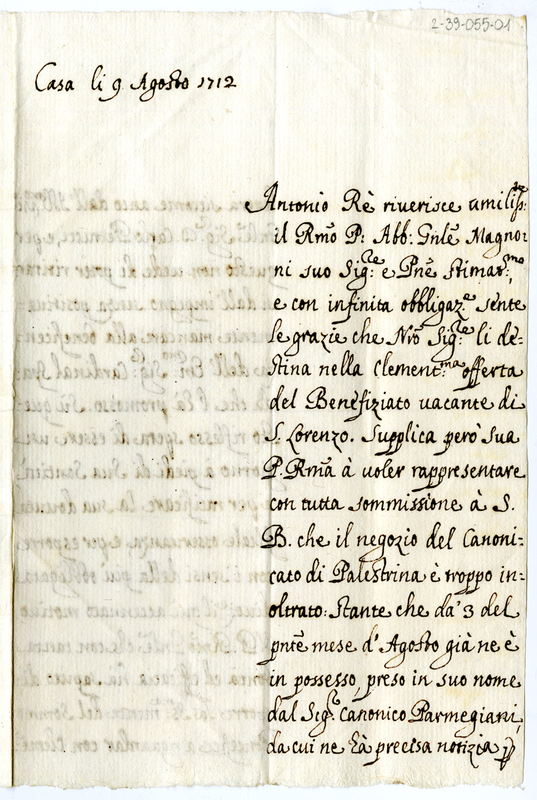 2-39-055-01
Casa li 9 Agosto 1712
Antonio Rè riverisce umiliss:te
il Rmo P: Abb: Gnle Magno:
ni suo Sig:re e Pne stimat:mo
e con infinita obbligaz:e sente
le grazie che Nro Sig:re li de:
stina nella Clement:ma offerta
del Benefiziato vacante di
S. Lorenzo. Supplica però sua
P. Rma à voler rappresentare
con tutta sommissione à S.
B. che il negozio del Canoni:
cato di Palestrina è troppo in:
oltrato: stante che da' 3 del
pnte mese d'Agosto già ne è
in possesso, preso in suo nome
dal Sig:r Canonico Parmegiani,
da cui ne hà precisa notizia p